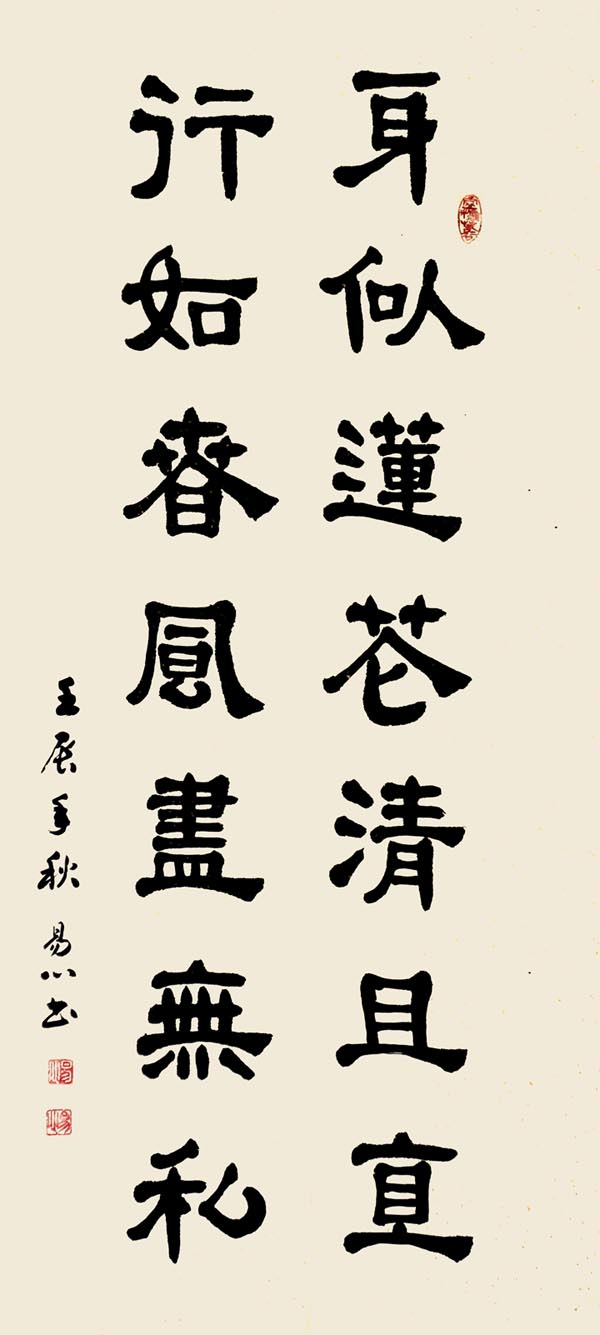 身似蓮花清且直
行如春風盡無私
壬辰年秋易心書